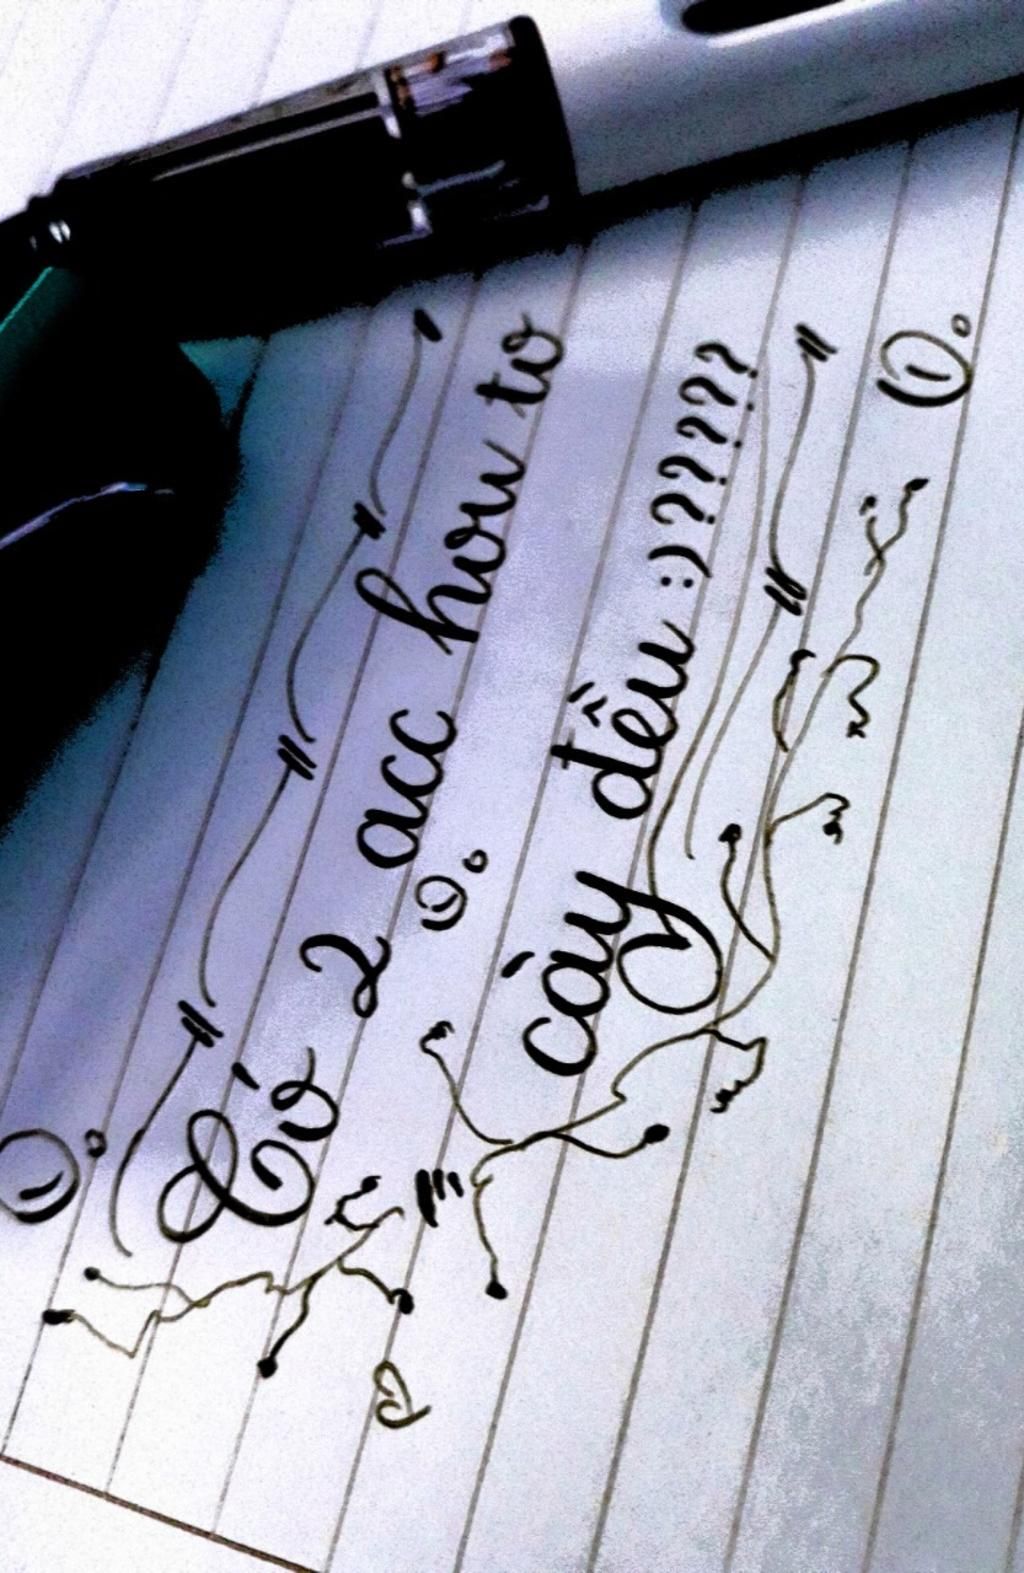 Có 2 acc how to
cày đều :)??????